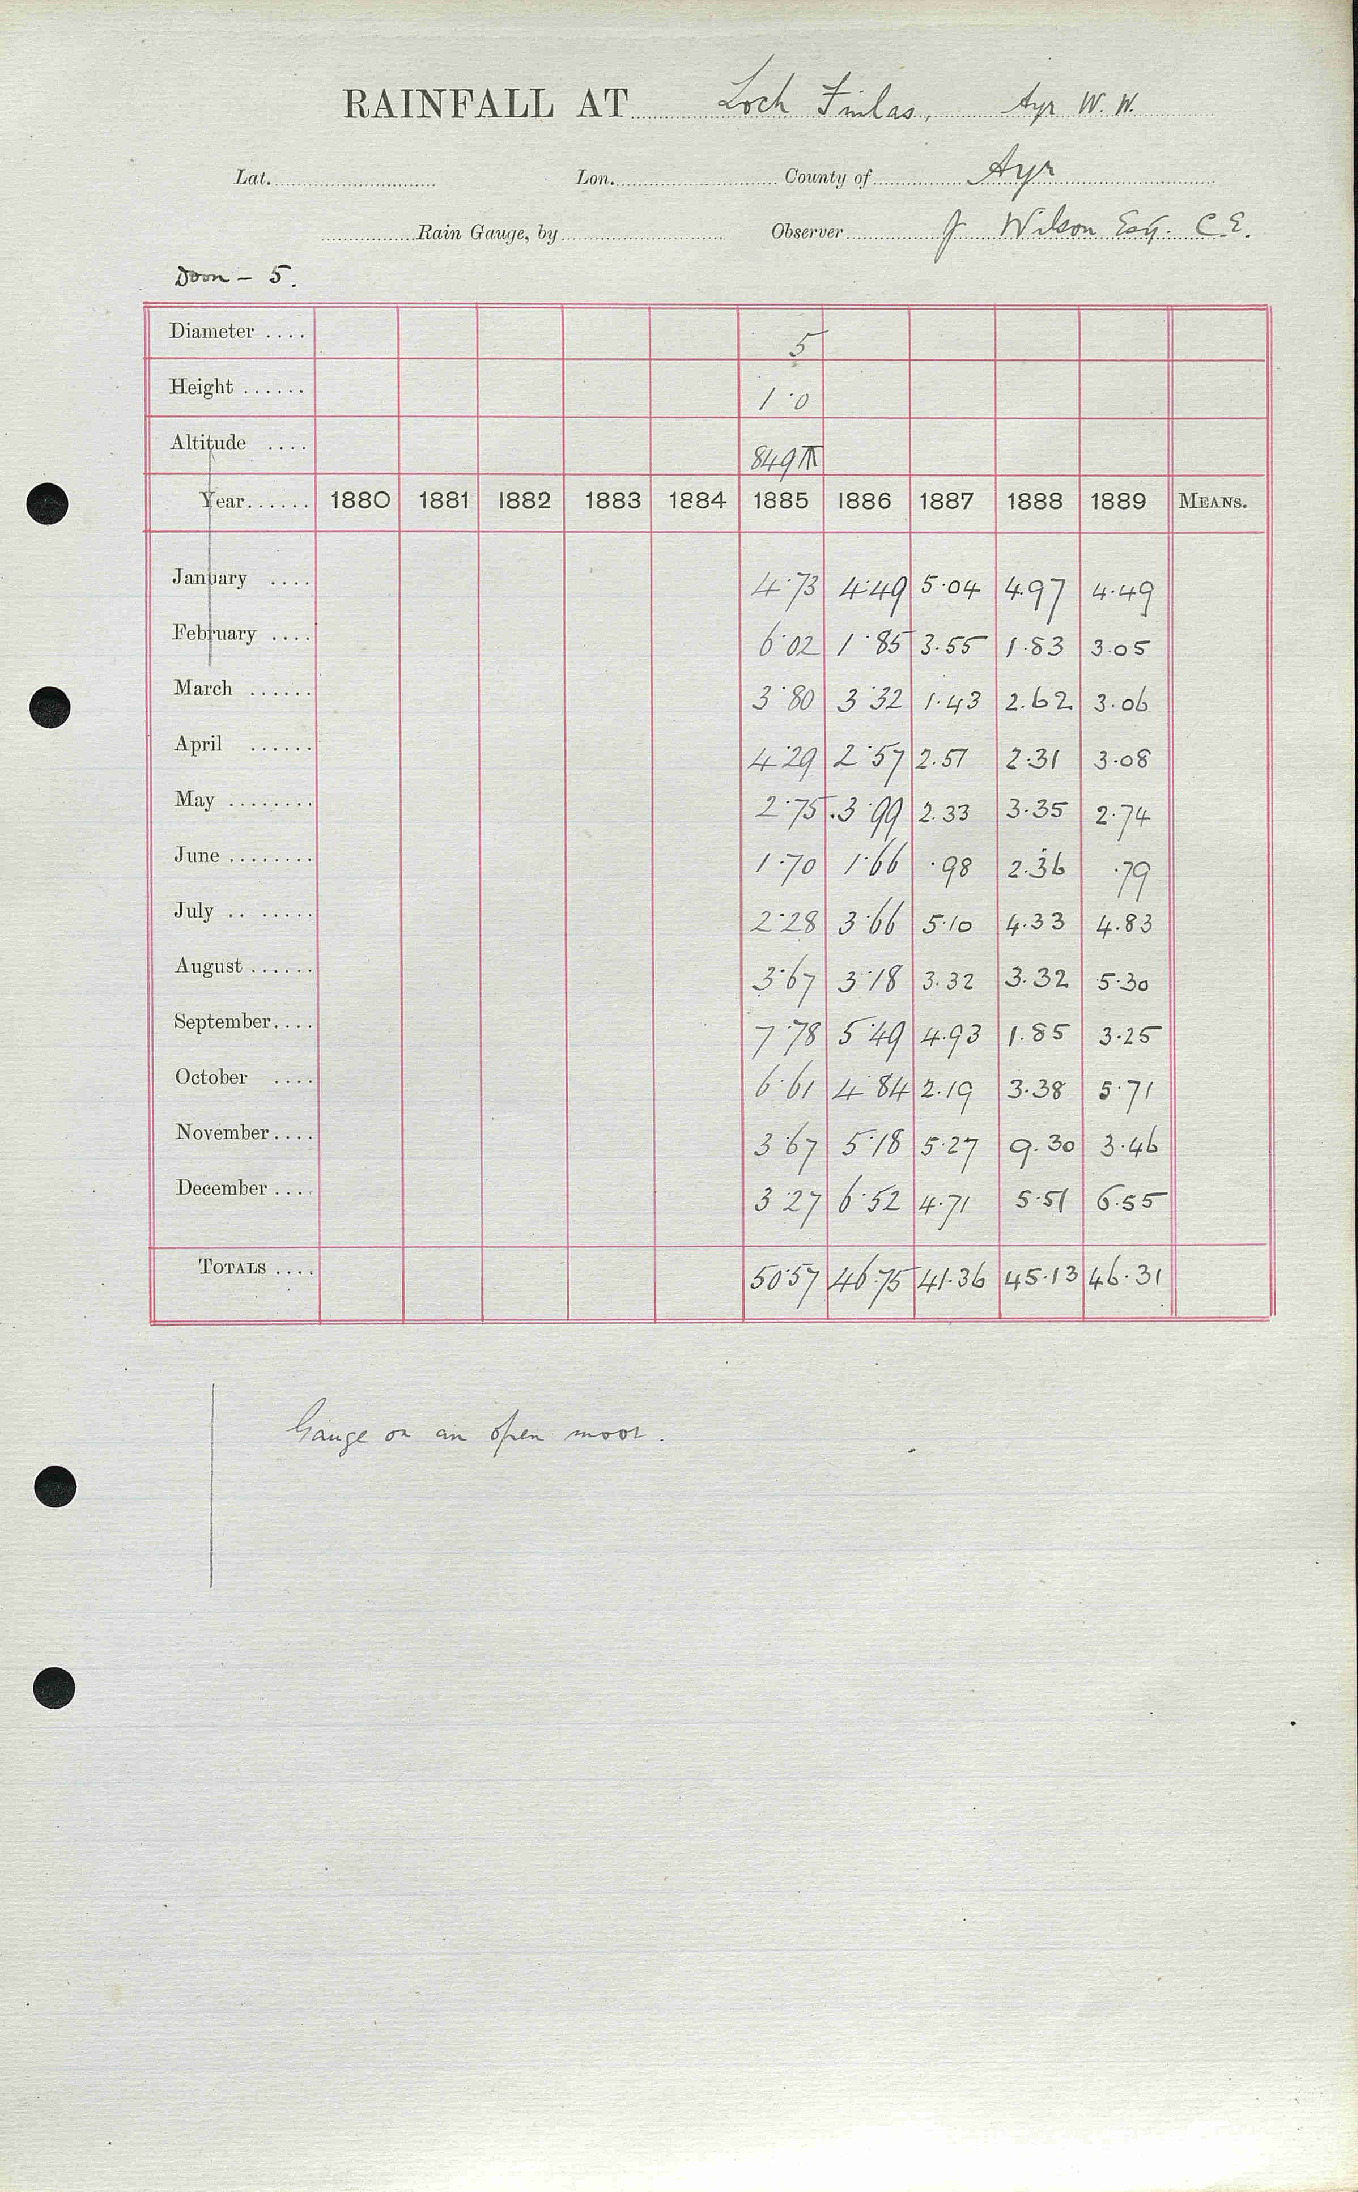 RAINFALL AT Loch Finlas, Ayr W. W.
Lat. Lon. County of Ayr
Rain Gauge, by Observer J Wilson Esq. C.E.
Doon - 5.
Diameter .... 5
Height ...... 1·0
Altitude .... 849 ft
Year...... 1880 1881 1882 1883 1884 1885 1886 1887 1888 1889 MEANS.
January .... 4·73 4·49 5·04 4.97 4·49
February .... 6·02 1·85 3.55 1·83 3.05
March ...... 3·80 3·32 1·43 2.62 3·06
April ...... 4·29 2·57 2.51 2·31 3·08
May ........ 2·75 3·99 2.33 3·35 2·74
June ........ 1·70 1·66 ·98 2.36 ·79
July .. ..... 2·28 3·66 5·10 4.33 4.83
August ...... 3·67 3·18 3.32 3.32 5·30
September.... 7·78 5·49 4.93 1.85 3·25
October .... 6·61 4·84 2.19 3.38 5·71
November.... 3·67 5·18 5·27 9.30 3·46
December .... 3·27 6·52 4·71 5·51 6.55
TOTALS .... 50·57 46·75 41·36 45·13 46·31
Gauge on an open moor.